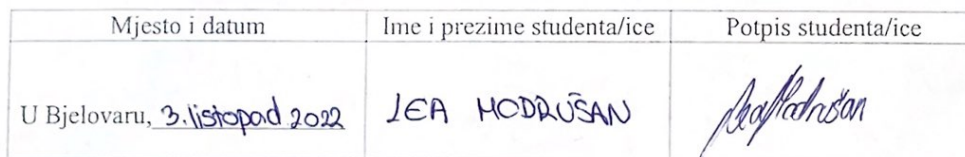 Mjesto i datum Ime i prezime studenta/ice Potpis studenta/ice
U Bjelovaru, 3. listopad 2022 LEA MODRUŠAN Lea Modrušan